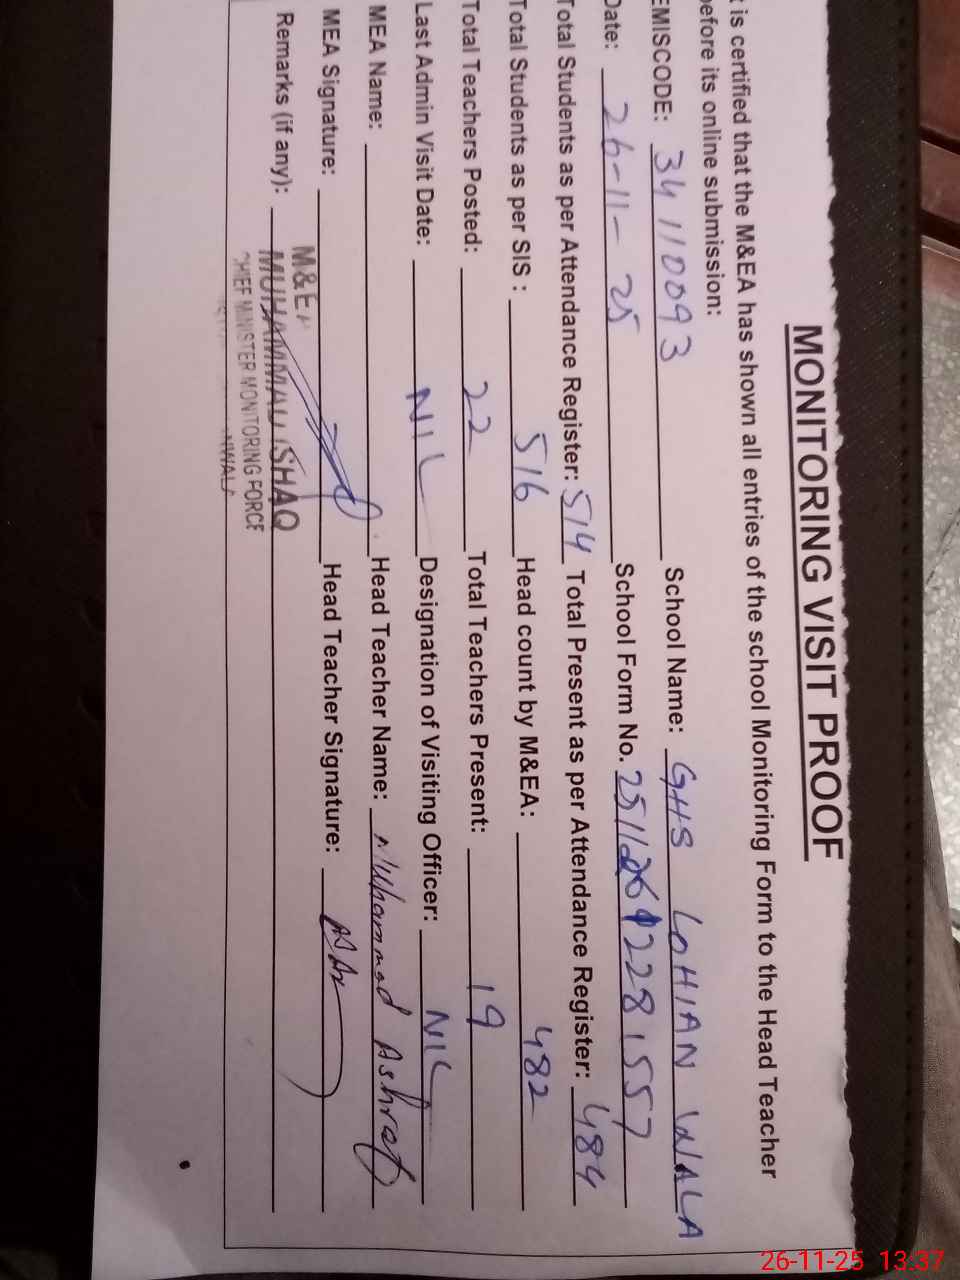 MONITORING VISIT PROOF
t is certified that the M&EA has shown all entries of the school Monitoring Form to the Head Teacher
before its online submission:
EMISCODE: 34110093 School Name: GHS LOHIAN WALA
Date: 26-11-25 School Form No. 25112612281557
Total Students as per Attendance Register: 514 Total Present as per Attendance Register: 484
Total Students as per SIS : 516 Head count by M&EA: 482
Total Teachers Posted: 22 Total Teachers Present: 19
Last Admin Visit Date: NIL Designation of Visiting Officer: NIL
MEA Name: Head Teacher Name: Muhammad Ashraf
MEA Signature: Head Teacher Signature:
Remarks (if any):
M&EA
MUHAMMAD ISHAQ
CHIEF MINISTER MONITORING FORCE
26-11-25 13:37